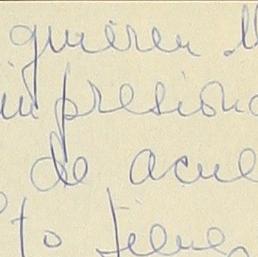 quieren ll
impresiona
de acue
to tienen